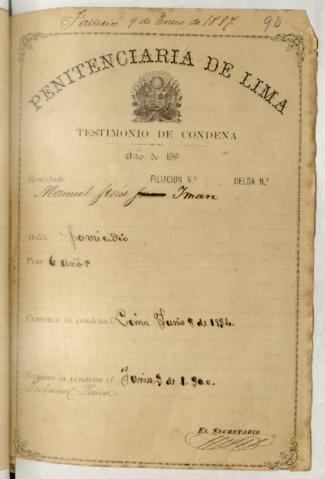 Falleció 9 de Enero de 1897
90
PENITENCIARIA DE LIMA
TESTIMONIO DE CONDENA
Año de 189
Rematado FILIACION N.º CELDA N.º
Manuel Jesus Iman
Delito
Pena 6 años
Comenzó la condena Lima Junio 9 de 1894.
Termina la condena el Junio 9 de 1.900.
Tribunal Piura
EL SECRETARIO